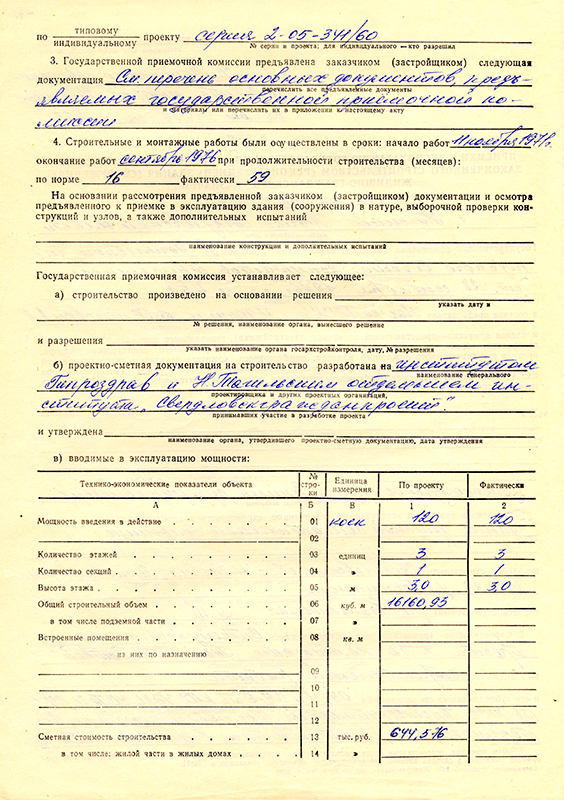 по типовому/индивидуальному проекту серия 2-05-341/60
№ серии и проекта; для индивидуального — кто разрешил
3. Государственной приемочной комиссии предъявлена заказчиком (застройщиком) следующая
документация См. перечень основных документов, предъ-
перечислить все предъявленные документы
являемых государственной приёмочной ко-
и материалы или перечислить их в приложении к настоящему акту
миссии
4. Строительные и монтажные работы были осуществлены в сроки: начало работ 11 ноября 1971г.
окончание работ сентябрь 1976 при продолжительности строительства (месяцев):
по норме 16 фактически 59
На основании рассмотрения предъявленной заказчиком (застройщиком) документации и осмотра
предъявленного к приемке в эксплуатацию здания (сооружения) в натуре, выборочной проверки кон-
струкций и узлов, а также дополнительных испытаний
наименование конструкции и дополнительных испытаний
Государственная приемочная комиссия устанавливает следующее:
а) строительство произведено на основании решения
указать дату и
№ решения, наименование органа, вынесшего решение
и разрешения
указать наименование органа госархстройконтроля, дату, № разрешения
б) проектно-сметная документация на строительство разработана на институтом
наименование генерального
Гипроздрав и Н.Тагильским отделением ин-
проектировщика и других проектных организаций,
ститута „Свердловскгражданпроект".
принимавших участие в разработке проекта
и утверждена
наименование органа, утвердившего проектно-сметную документацию, дата утверждения
в) вводимые в эксплуатацию мощности:
Технико-экономические показатели объекта № стро-ки Единица измерения По проекту Фактически
А Б В 1 2
Мощность введения в действие 01 коек 120 120
02
Количество этажей 03 единиц 3 3
Количество секций 04 » 1 1
Высота этажа 05 м 3,0 3,0
Общий строительный объем 06 куб. м 16160,93
в том числе подземной части 07 »
Встроенные помещения 08 кв. м
из них по назначению
09
10
11
12
Сметная стоимость строительства 13 тыс. руб. 644,576
в том числе: жилой части в жилых домах 14 »